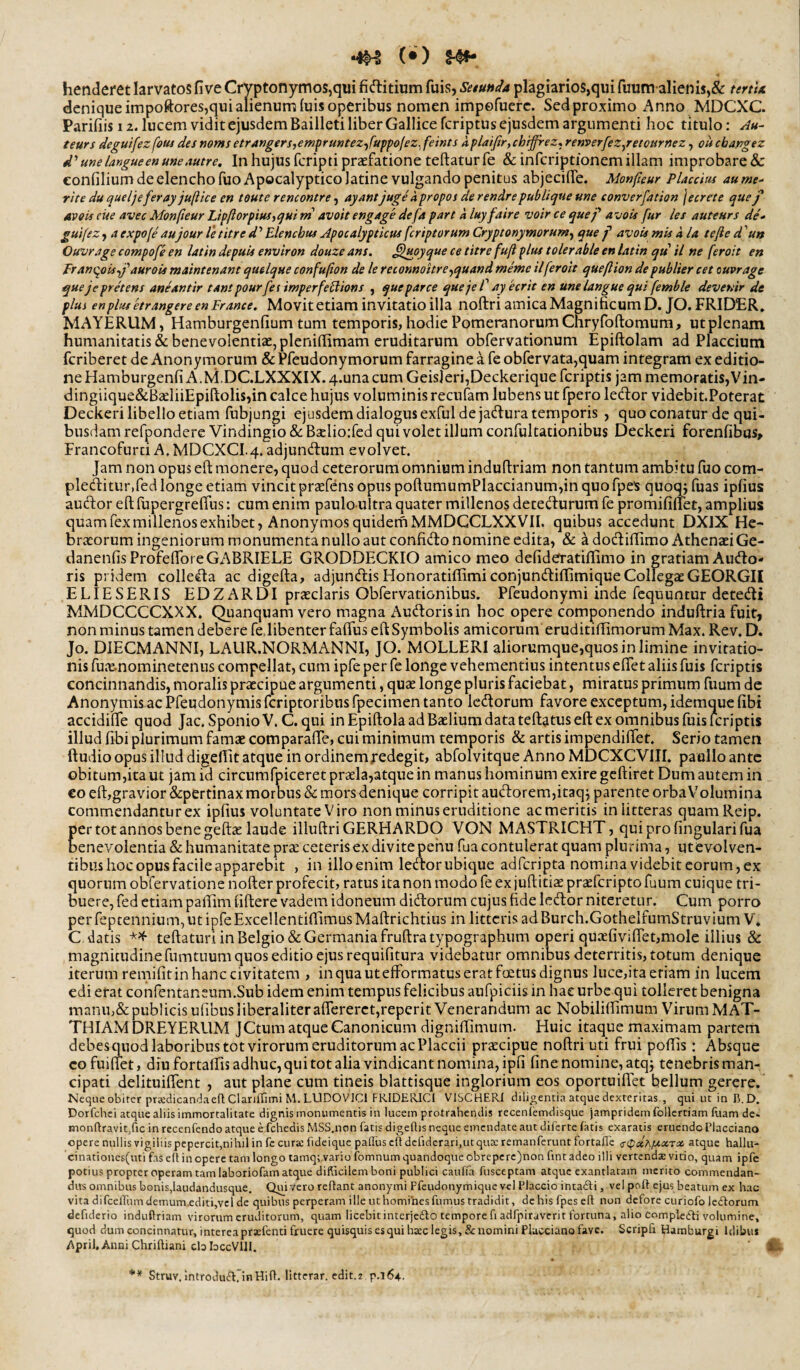 (•)
henderet larvatos sive Cryptonymos,qui fictitium suis, Secunda plagiarios,qui suum alienis,& tertia
denique impostores,qui alienum suis operibus nomen imposuere. Sed proximo Anno MDCXC.
Parisiis 12. lucem vidit ejusdem Bailleti liber Gallice scriptus ejusdem argumenti hoc titulo: Au-
teurs deguisez sous des noms etrangers,empruntez,supposez,feints à plaisir,chiffrez,renversez,retournez, où changez
d'une langue en une autre. In hujus scripti præfatione testatur se & inscriptionem illam improbare &
consilium de elencho suo Apocalyptico latine vulgando penitus abjecisse. Monsieur Placcius au me-
rite du quel je feray justice en toute rencontre, ayant jugé à propos de rendre publique une conversation secrete que j'
avois eüe avec Monsieur Lipstorpius,qui m' avoit engagé de sa part à luy faire voir ce que j' avois sur les auteurs dé-
guisez, a exposé au jour le titre d' Elenchus Apocalypticus scriptorum Cryptonymorum, que j' avois mis à la teste d'un
Ouvrage composé en latin depuis environ douze ans. Quoyque ce titre fust plus tolerable en latin qu' il ne seroit en
François,j'aurois maintenant quelque confusion de le reconnoitre,quand méme il seroit question de publier cet ouvrage
que je prétens anéantir tant pour ses imperfections , que parce que je l' ay écrit en une langue qui semble devenir de
plus en plus étrangere en France. Movit etiam invitatio illa nostri amica Magnificum D. JO. FRIDER.
MAYERUM, Hamburgensium tum temporis, hodie Pomeranorum Chrysostomum, ut plenam
humanitatis & benevolentiæ,plenissimam eruditarum observationum Epistolam ad Placcium
scriberet de Anonymorum & Pseudonymorum farragine à se observata,quam integram ex editio-
ne Hamburgensi A.M.DC.LXXXIX. 4.una cum Geisleri,Deckerique scriptis jam memoratis,Vin-
dingiique&BæliiEpistolis,in calce hujus voluminis recusam lubens ut spero lector videbit.Poterat
Deckeri libello etiam subjungi ejusdem dialogus exsul de jactura temporis , quo conatur de qui-
busdam respondere Vindingio & Bælio:sed qui volet illum consultationibus Deckeri forensibus,
Francofurti A. MDCXCI.4. adjunctum evolvet.
Jam non opus est monere, quod ceterorum omnium industriam non tantum ambitu suo com-
plectitur,sed longe etiam vincit præsens opus postumumPlaccianum,in quo spes quoq; suas ipsius
auctor est supergressus: cum enim paulo ultra quater millenos detecturum se promisisset, amplius
quam sex millenos exhibet, Anonymos quidem MMDCCLXXVII. quibus accedunt DXIX He-
bræorum ingeniorum monumenta nullo aut conficto nomine edita, & à doctissimo Athenæi Ge-
danensis Professore GABRIELE GRODDECKIO amico meo desideratissimo in gratiam Aucto-
ris pridem collecta ac digesta, adjunctis Honoratissimi conjunctissimique Collegæ GEORGII
ELIESERIS EDZARDI præclaris Observationibus. Pseudonymi inde sequuntur detecti
MMDCCCCXXX. Quanquam vero magna Auctoris in hoc opere componendo industria fuit,
non minus tamen debere se libenter fassus est Symbolis amicorum eruditissimorum Max. Rev. D.
Jo. DIECMANNI, LAUR.NORMANNI, JO. MOLLERI aliorumque,quos in limine invitatio-
nis suæ nominetenus compellat, cum ipse per se longe vehementius intentus esset aliis suis scriptis
concinnandis, moralis præcipue argumenti, quæ longe pluris faciebat, miratus primum suum de
Anonymis ac Pseudonymis scriptoribus specimen tanto lectorum favore exceptum, idemque sibi
accidisse quod Jac. Sponio V. C. qui in Epistola ad Bælium data testatus est ex omnibus suis scriptis
illud sibi plurimum famæ comparasse, cui minimum temporis & artis impendisset. Serio tamen
studio opus illud digessit atque in ordinem redegit, absolvitque Anno MDCXCVIII. paullo ante
obitum,ita ut jam id circumspiceret præla,atque in manus hominum exire gestiret Dum autem in
eo est,gravior &pertinax morbus & mors denique corripit auctorem,itaq; parente orba Volumina
commendantur ex ipsius voluntate Viro non minus eruditione ac meritis in litteras quam Reip.
per tot annos bene gestæ laude illustri GERHARDO VON MASTRICHT, qui pro singulari sua
benevolentia & humanitate præ ceteris ex divite penu sua contulerat quam plurima, ut evolven-
tibus hoc opus facile apparebit , in illo enim lector ubique adscripta nomina videbit eorum, ex
quorum observatione noster profecit, ratus ita non modo se ex justitiæ præscripto suum cuique tri-
buere, sed etiam passim sistere vadem idoneum dictorum cujus fide lector niteretur. Cum porro
per septennium, ut ipse Excellentissimus Mastrichtius in litteris ad Burch.GothelfumStruvium V.
C. datis ** testatur: in Belgio & Germania frustra typographum operi quæsivisset,mole illius &
magnitudine sumtuum quos editio ejus requisitura videbatur omnibus deterritis, totum denique
iterum remisit in hanc civitatem , in qua ut efformatus erat fœtus dignus luce,ita etiam in lucem
edi erat consentaneum.Sub idem enim tempus felicibus auspiciis in hac urbe qui tolleret benigna
manu,& publicis usibus liberaliter assereret,reperit Venerandum ac Nobilissimum Virum MAT-
THIAM DREYERUM JCtum atque Canonicum dignissimum. Huic itaque maximam partem
debes quod laboribus tot virorum eruditorum ac Placcii præcipue nostri uti frui possis : Absque
eo fuisset, diu fortassis adhuc, qui tot alia vindicant nomina, ipsi sine nomine, atq; tenebris man-
cipati delituissent , aut plane cum tineis blattisque inglorium eos oportuisset bellum gerere.
Neque obiter prædicanda est Clarissimi M. LUDOVICI FRIDERICI VISCHERI diligentia atque dexteritas , qui ut in B.D.
Dorfchei atque aliis immortalitate dignis monumentis in lucem protrahendis recensendisque jampridem sollertiam suam de-
monstravit,sic in recensendo atque è schedis MSS.non satis digestis neque emendate aut diserte satis exaratis eruendo Placciano
opere nullis vigiliis pepercit,nihil in se curæ fideique passus est desiderari,ut quæ remanserunt fortasse σφάλματα atque hallu-
cinationes(uti fas est in opere tam longo tamq;vario somnum quandoque obrepere)non sint adeo illi vertendæ vitio, quam ipse
potius propter operam tam laboriosam atque difficilem boni publici caussa susceptam atque exantlatam merito commendan-
dus omnibus bonis,laudandusque. Qui vero restant anonymi Pseudonymique vel Placcio intacti , vel post ejus beatum ex hac
vita discessum demum editi,vel de quibus perperam ille ut homines sumus tradidit , de his spes est non defore curioso lectorum
desiderio industriam virorum eruditorum, quam licebit interjecto tempore si adspiraverit fortuna, alio complecti volumine,
quod dum concinnatur, interea præsenti fruere quisquis es qui hæc legis, & nomini Placciano fave. Scripsi Hamburgi Idibus
April. Anni Christiani cIɔIɔccVIII.
** Struv. introduct. in Hist. litterar. edit.2 p.164.